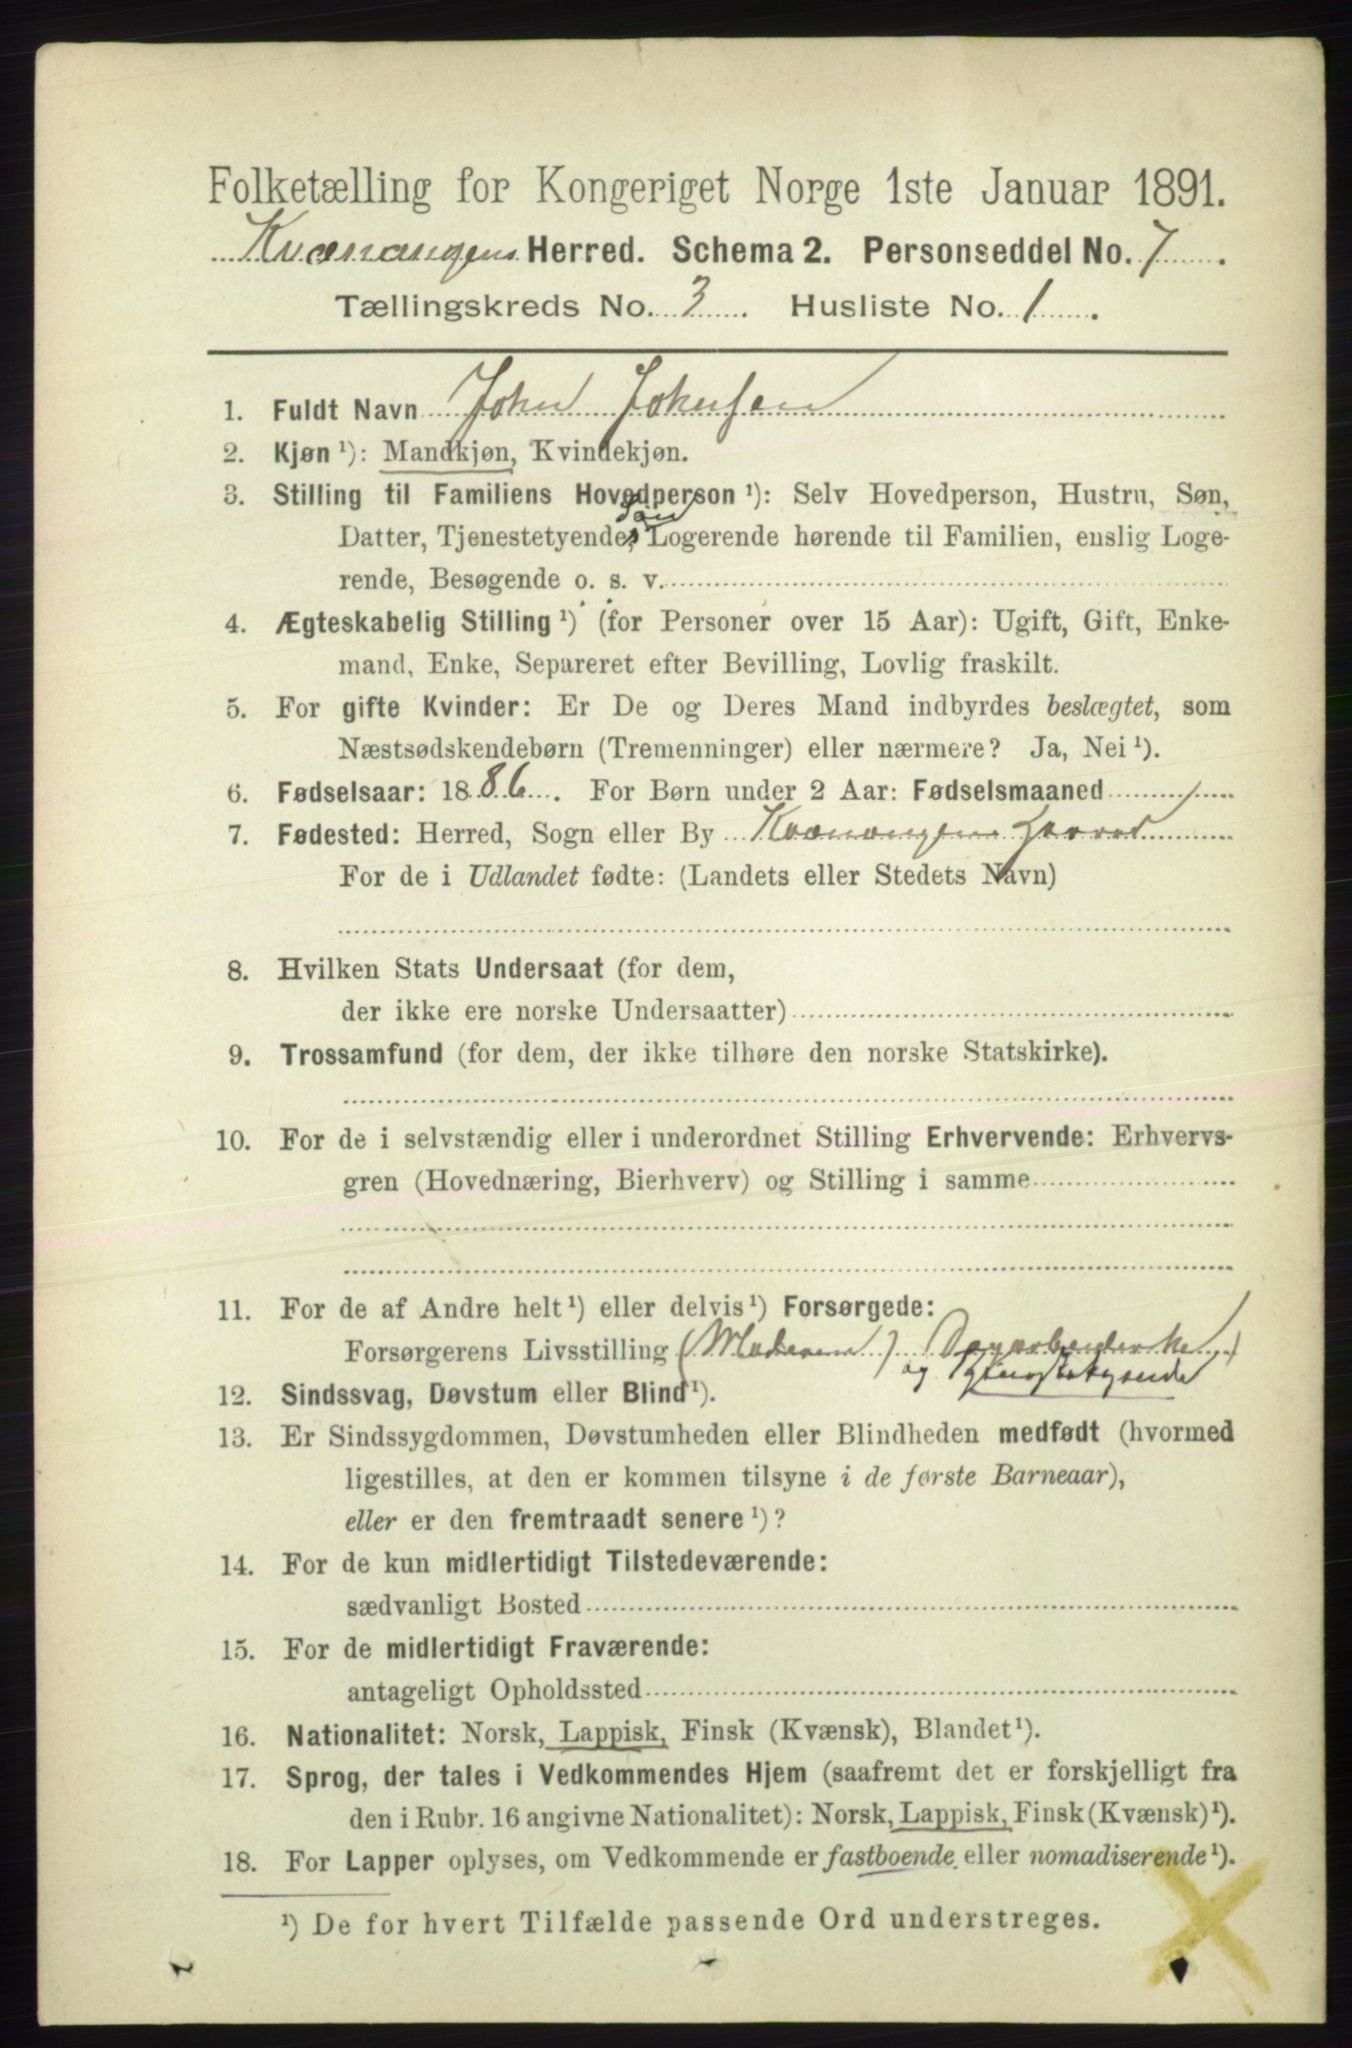 Folketælling for Kongeriget Norge 1ste Januar 1891.
Kvænangens Herred. Schema 2. Personseddel No. 7
Tællingskreds No. 3 Husliste No. 1.
1. Fuldt Navn John Johnsen
2. Kjøn ¹): Mandkjøn, Kvindekjøn.
3. Stilling til Familiens Hovedperson ¹): Selv Hovedperson, Hustru, Søn,
Søn
Datter, Tjenestetyende, Logerende hørende til Familien, enslig Loge-
rende, Besøgende o. s. v.
4. Ægteskabelig Stilling ¹) (for Personer over 15 Aar): Ugift, Gift, Enke-
mand, Enke, Separeret efter Bevilling, Lovlig fraskilt.
5. For gifte Kvinder: Er De og Deres Mand indbyrdes beslægtet, som
Næstsødskendebørn (Tremenninger) eller nærmere? Ja, Nei ¹).
6. Fødselsaar: 1886. For Børn under 2 Aar: Fødselsmaaned
7. Fødested: Herred, Sogn eller By Kvænangens Herred
For de i Udlandet fødte: (Landets eller Stedets Navn)
8. Hvilken Stats Undersaat (for dem,
der ikke ere norske Undersaatter)
9. Trossamfund (for dem, der ikke tilhøre den norske Statskirke).
10. For de i selvstændig eller i underordnet Stilling Erhvervende: Erhvervs-
gren (Hovednæring, Bierhverv) og Stilling i samme
11. For de af Andre helt ¹) eller delvis ¹) Forsørgede:
Forsørgerens Livsstilling (Moderen) Dagarbeiderske
og
12. Sindssvag, Døvstum eller Blind ¹).
13. Er Sindssygdommen, Døvstumheden eller Blindheden medfødt (hvormed
ligestilles, at den er kommen tilsyne i de første Barneaar),
eller er den fremtraadt senere ¹)?
14. For de kun midlertidigt Tilstedeværende:
sædvanligt Bosted
15. For de midlertidigt Fraværende:
antageligt Opholdssted
16. Nationalitet: Norsk, Lappisk, Finsk (Kvænsk), Blandet ¹).
17. Sprog, der tales i Vedkommendes Hjem (saafremt det er forskjelligt fra
den i Rubr. 16 angivne Nationalitet): Norsk, Lappisk, Finsk (Kvænsk) ¹).
18. For Lapper oplyses, om Vedkommende er fastboende eller nomadiserende ¹).
¹) De for hvert Tilfælde passende Ord understreges.